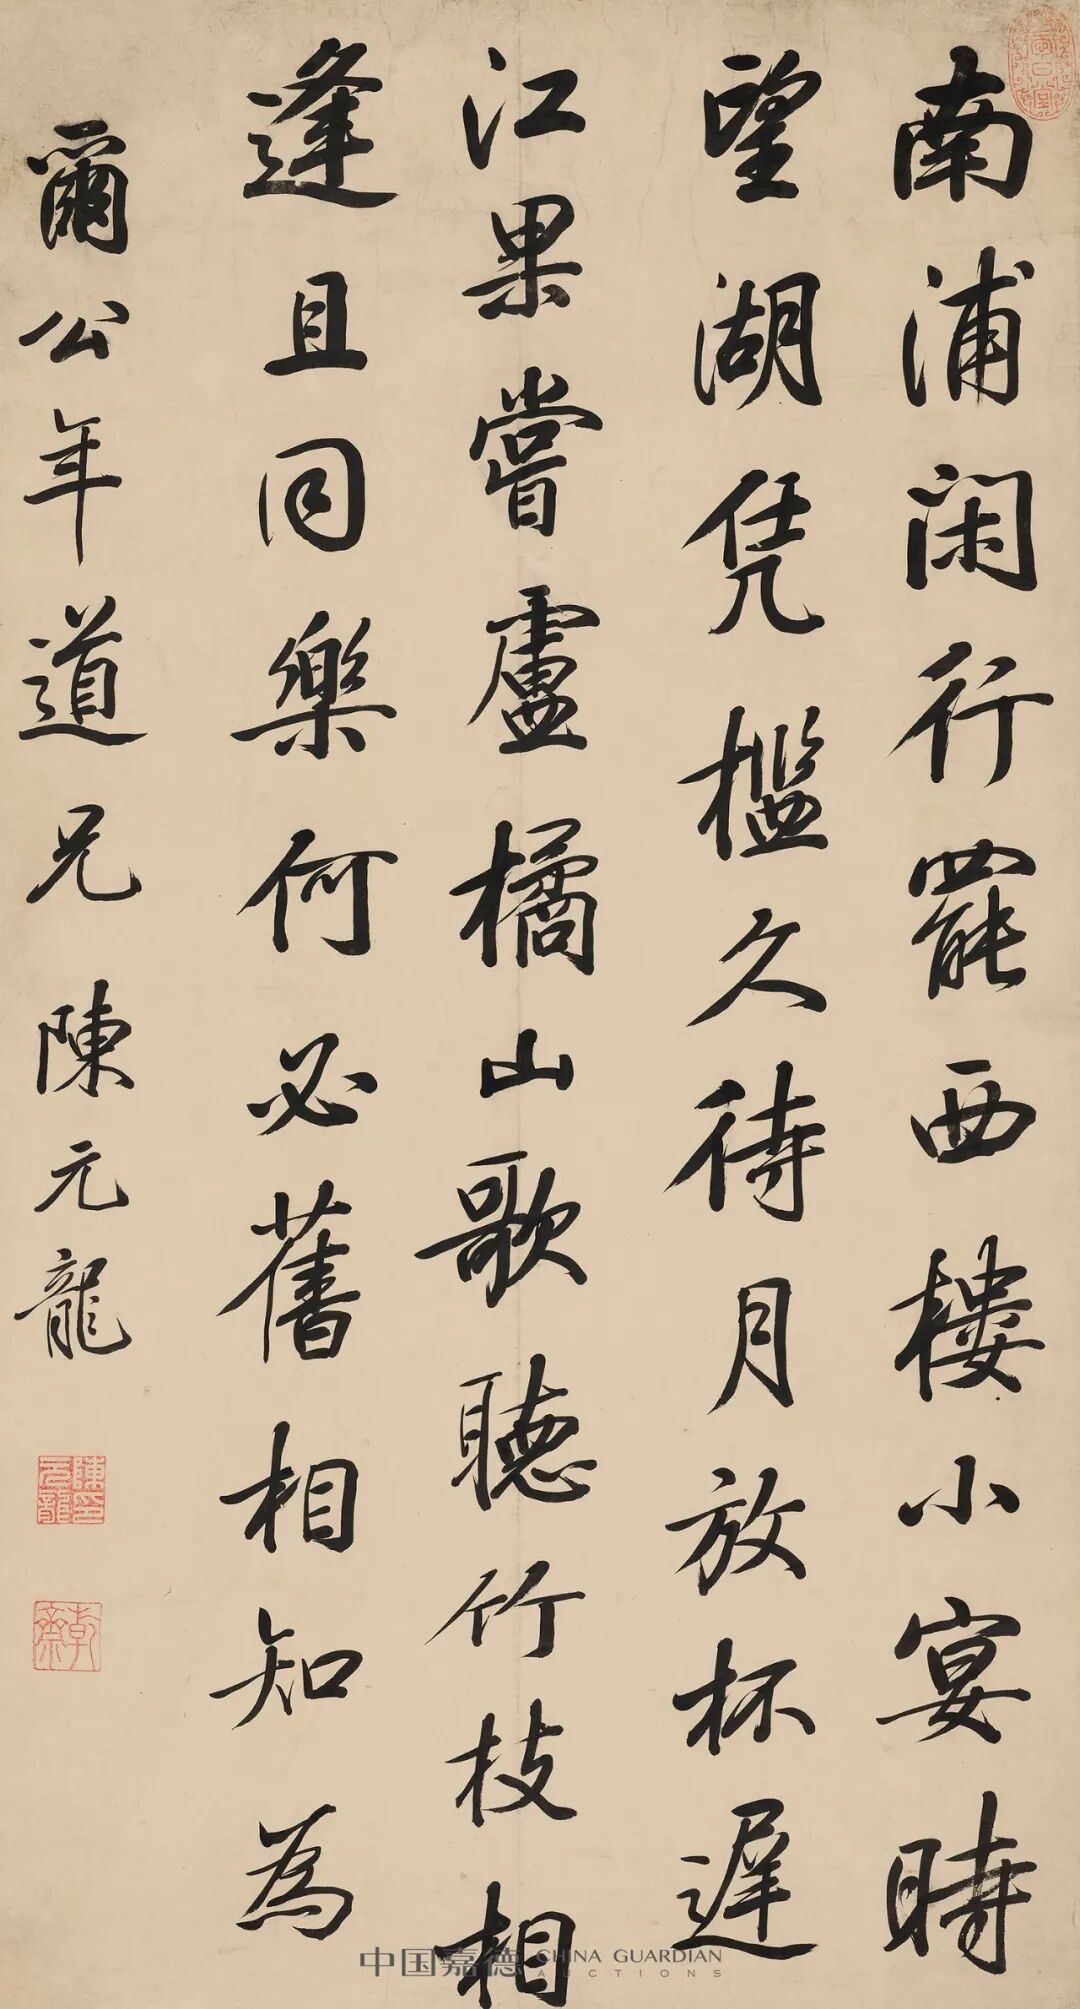 南浦闲行罷西樓小宴時
望湖凭檻久待月放杯遲
江果嘗盧橘山歌聽竹枝相
逢且同樂何必舊相知為
爾公年道兄陳元龍
陳元龍印
乾齋
中国嘉德 CHINA GUARDIAN
AUCTIONS